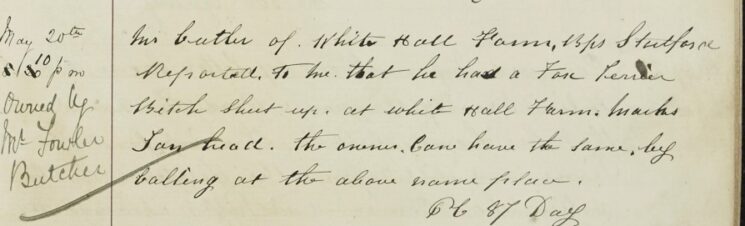 May 20th
8/10 pm
Owned by
Mr Fowler
Butcher
Mr Cutler of. White Hall Farm, Bps Stortford
Reported. to me. that he had a Fox Terrier
Bitch Shut up. at white Hall Farm. Marks
Tan head. the owner. Can have the same. by
Calling at the above name place.
PC 87 Day